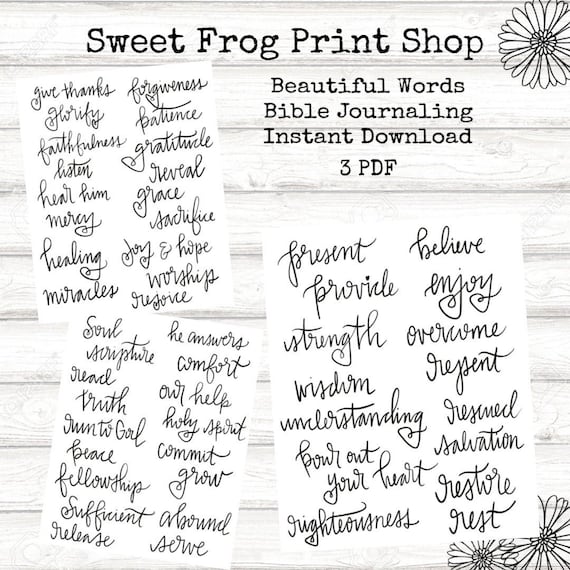 Sweet Frog Print Shop
Beautiful Words
Bible Journaling
Instant Download
3 PDF
give thanks
glorify
faithfulness
listen
hear him
mercy
healing
miracles
forgiveness
patience
gratitude
reveal
grace
sacrifice
joy & hope
worship
rejoice
Soul
scripture
read
truth
run to God
peace
fellowship
Sufficient
release
he answers
comfort
our help
holy spirit
commit
grow
abound
serve
present
provide
strength
wisdom
understanding
pour out
your heart
righteousness
believe
enjoy
overcome
repent
rescued
salvation
restore
rest